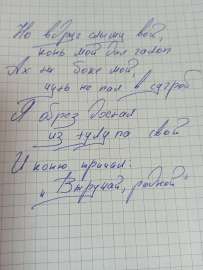 Но вдруг слышу вой,
конь мой дал галоп
Ах ты боже мой,
чуть не пал в сугроб
Я обрез достал
из тулупа свой
И коню кричал:
"Выручай, родной"